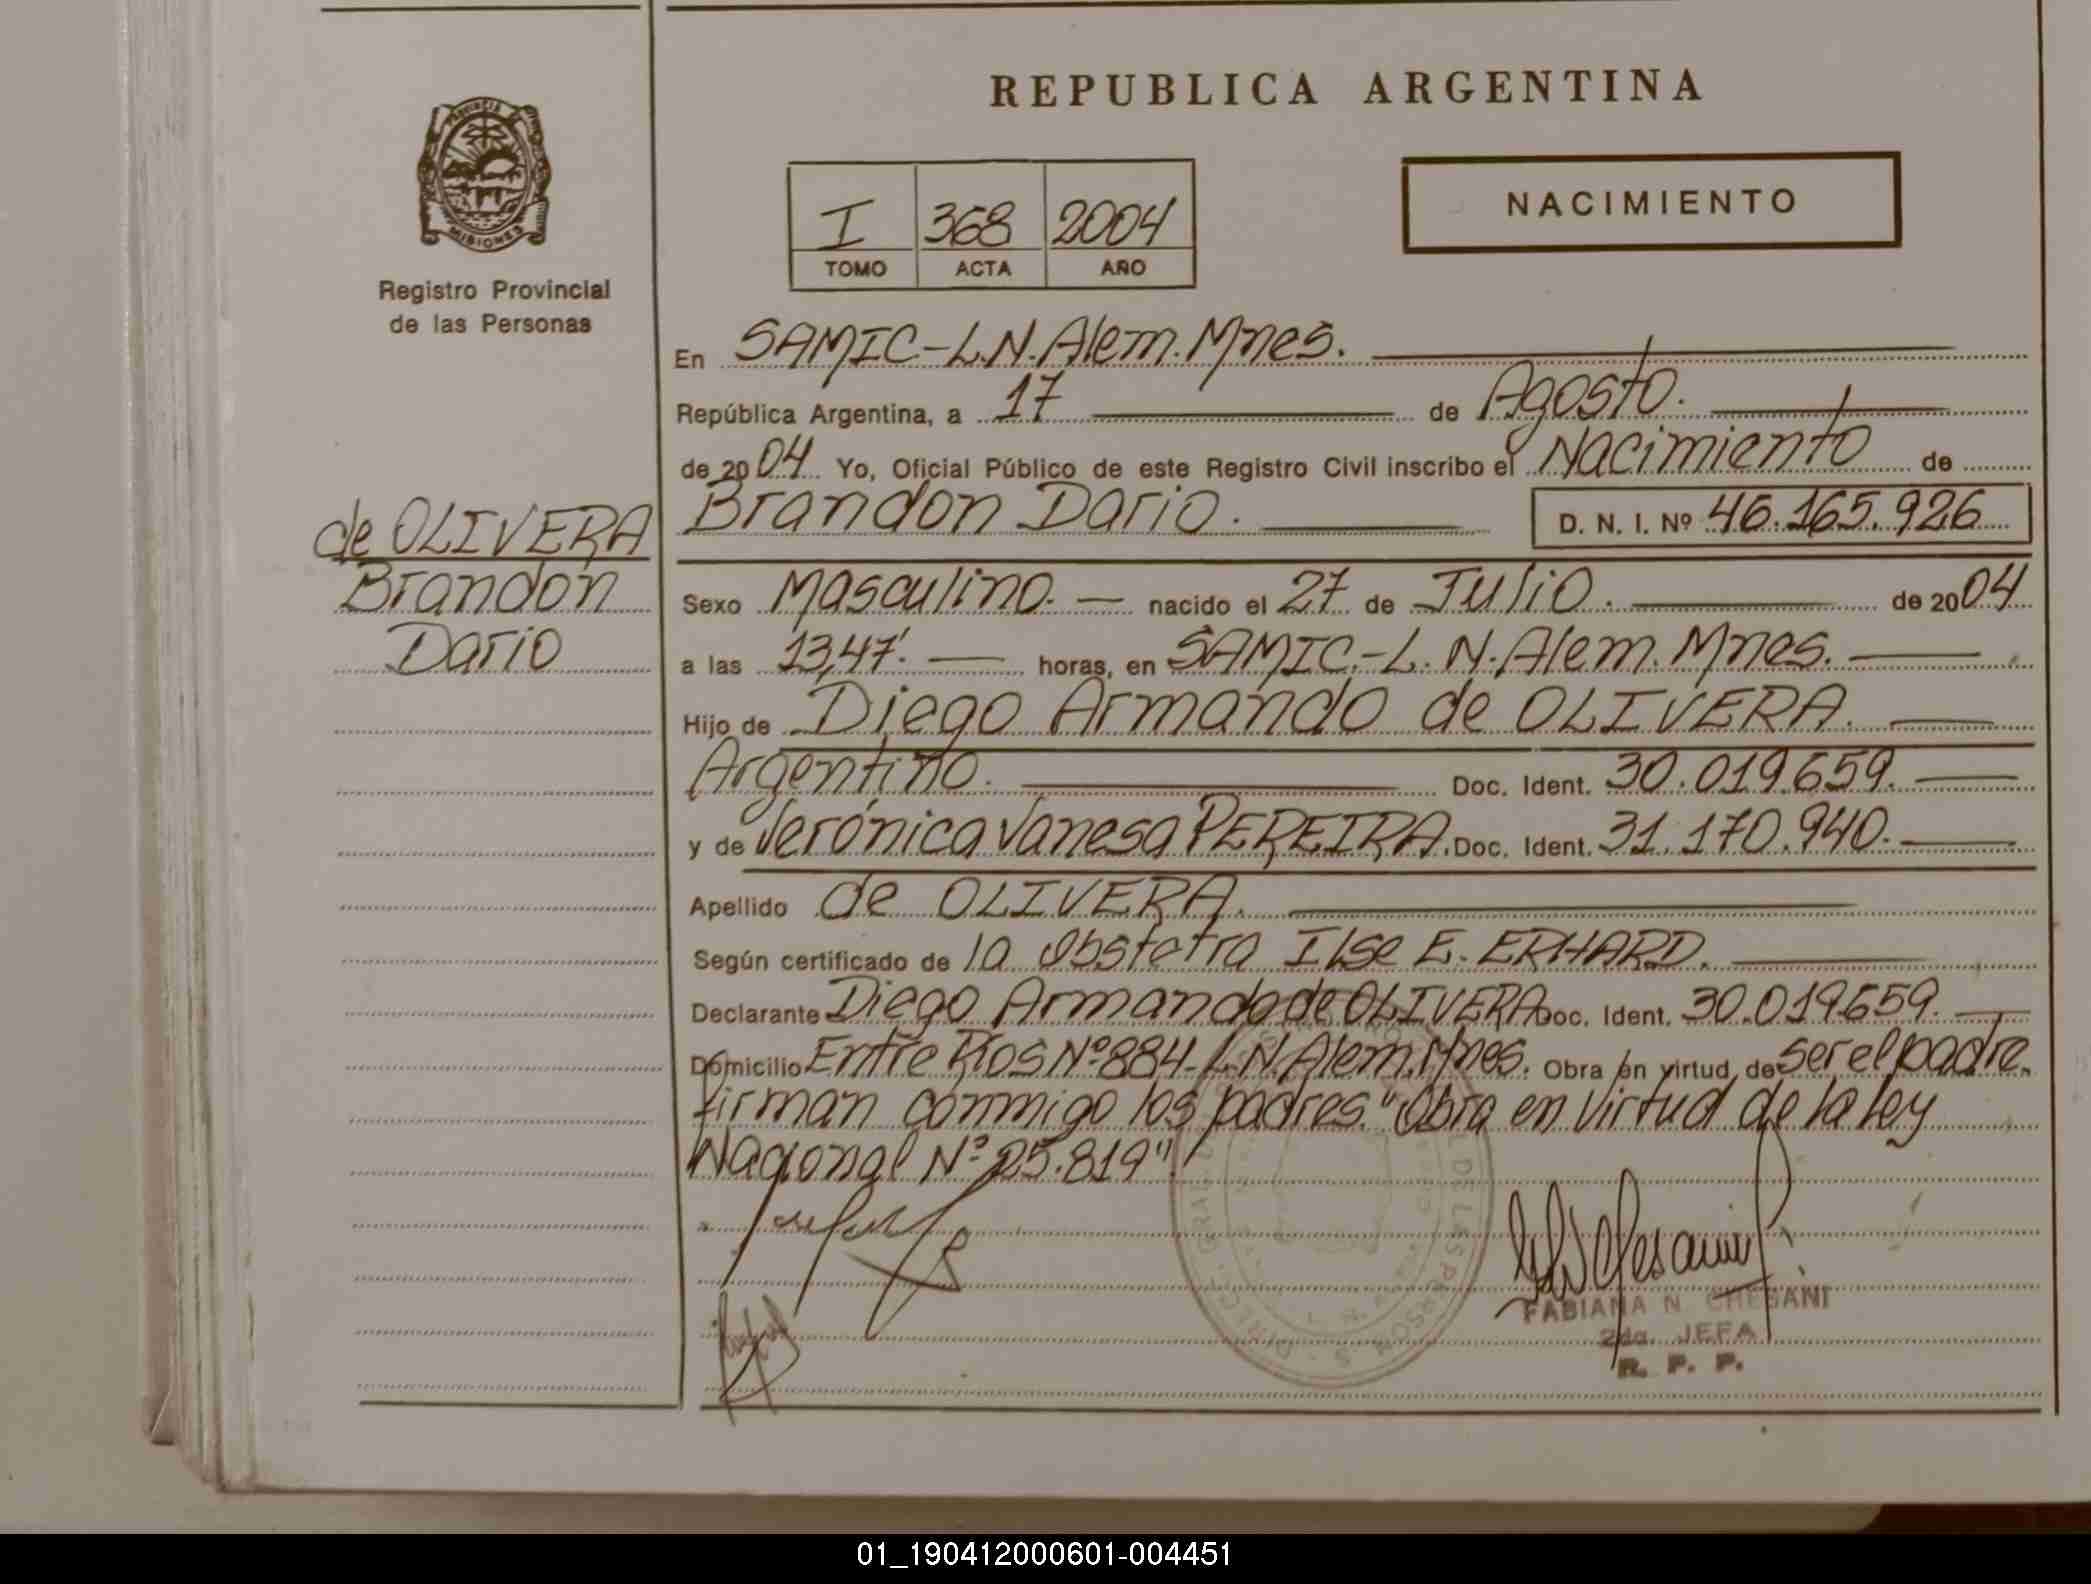 REPUBLICA ARGENTINA
PROVINCIA
MISIONES
Registro Provincial
de las Personas
NACIMIENTO
I 368 2004
TOMO ACTA AÑO
En SAMIC-L.N.Alem.Mnes.
República Argentina, a 17 de Agosto.
de 2004 Yo, Oficial Público de este Registro Civil inscribo el Nacimiento de
Brandon Dario. D. N. I. Nº 46.165.926
de OLIVERA
Brandon
Dario
Sexo Masculino. nacido el 27 de Julio. de 2004
a las 13,47'. horas, en SAMIC.-L. N. Alem. Mnes.
Hijo de Diego Armando de OLIVERA.
Argentino. Doc. Ident. 30.019.659.
y de Verónica Vanesa PEREIRA. Doc. Ident. 31.170.940.
Apellido de OLIVERA.
Según certificado de la Obstetra Ilse E. ERHARD.
Declarante Diego Armando de OLIVERA Doc. Ident. 30.019.659.
Domicilio Entre Ríos Nº 884-L.N.Alem.Mnes. Obra en virtud de ser el padre.
firman conmigo los padres. "Obra en Virtud de la ley
Nacional Nº 25.819".
FABIANA N. CHESANI
2da. JEFA
R. P. P.
01_190412000601-004451